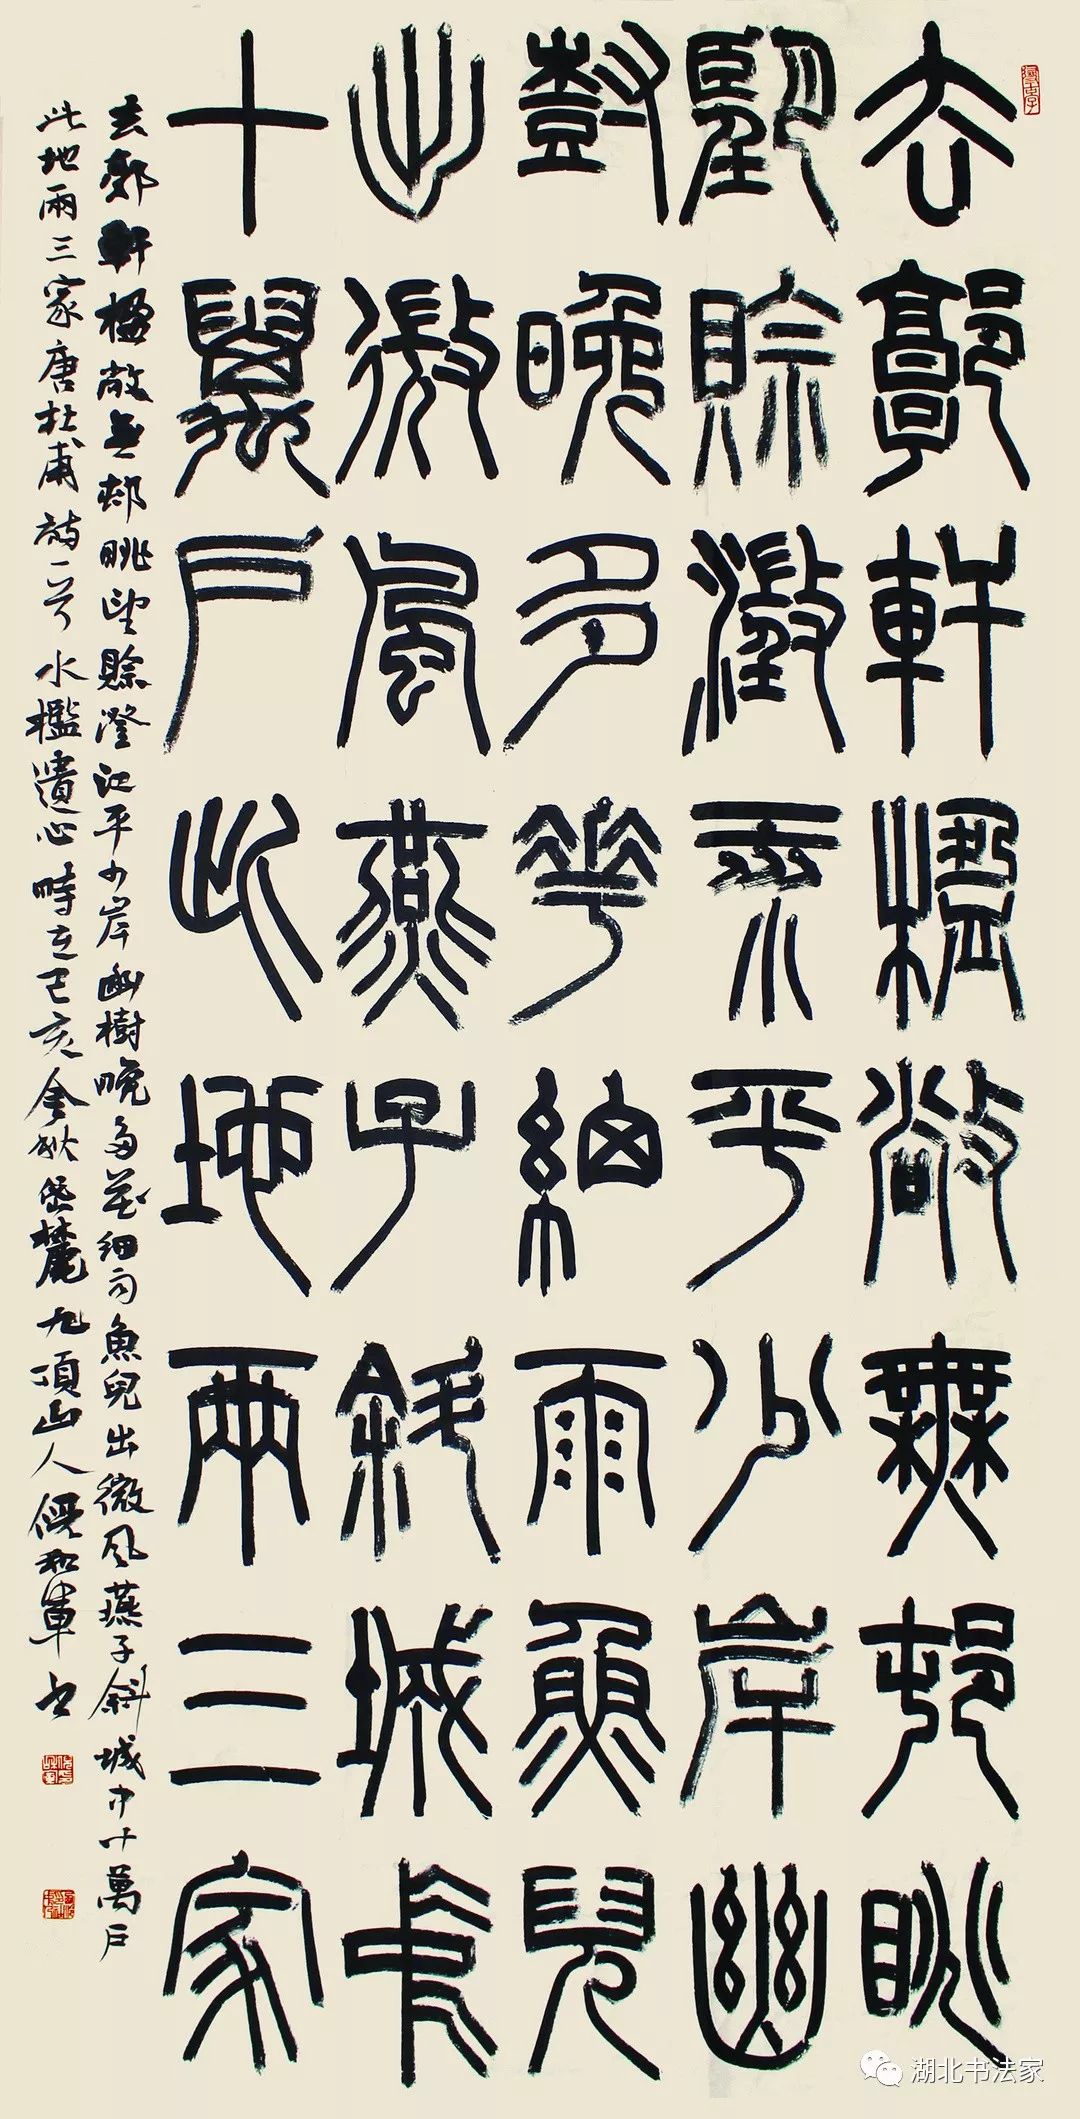 去郭軒楹敞無邨眺
望賒澂江平少岸幽
尌晚多花細雨魚兒
出微風燕子斜城中
十萬戶此地兩三家
去郭軒楹敞無邨眺望賒澄江平少岸幽樹晚多花細雨魚兒出微風燕子斜城中十萬戶
此地兩三家唐杜甫詩一首水檻遣心時在己亥金秋岱麓九頂山人倪和軍書
湖北书法家